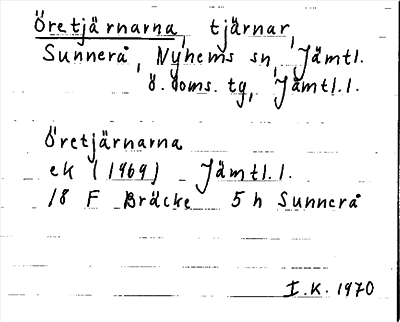 Öretjärnarna, tjärnar,
Sunnerå, Nyhems sn, Jämtl.
ö. doms. tg, Jämtl. l.
Öretjärnarna
ek (1969) Jämtl. l.
18 F Bräcke 5 h Sunnerå
I.K. 1970